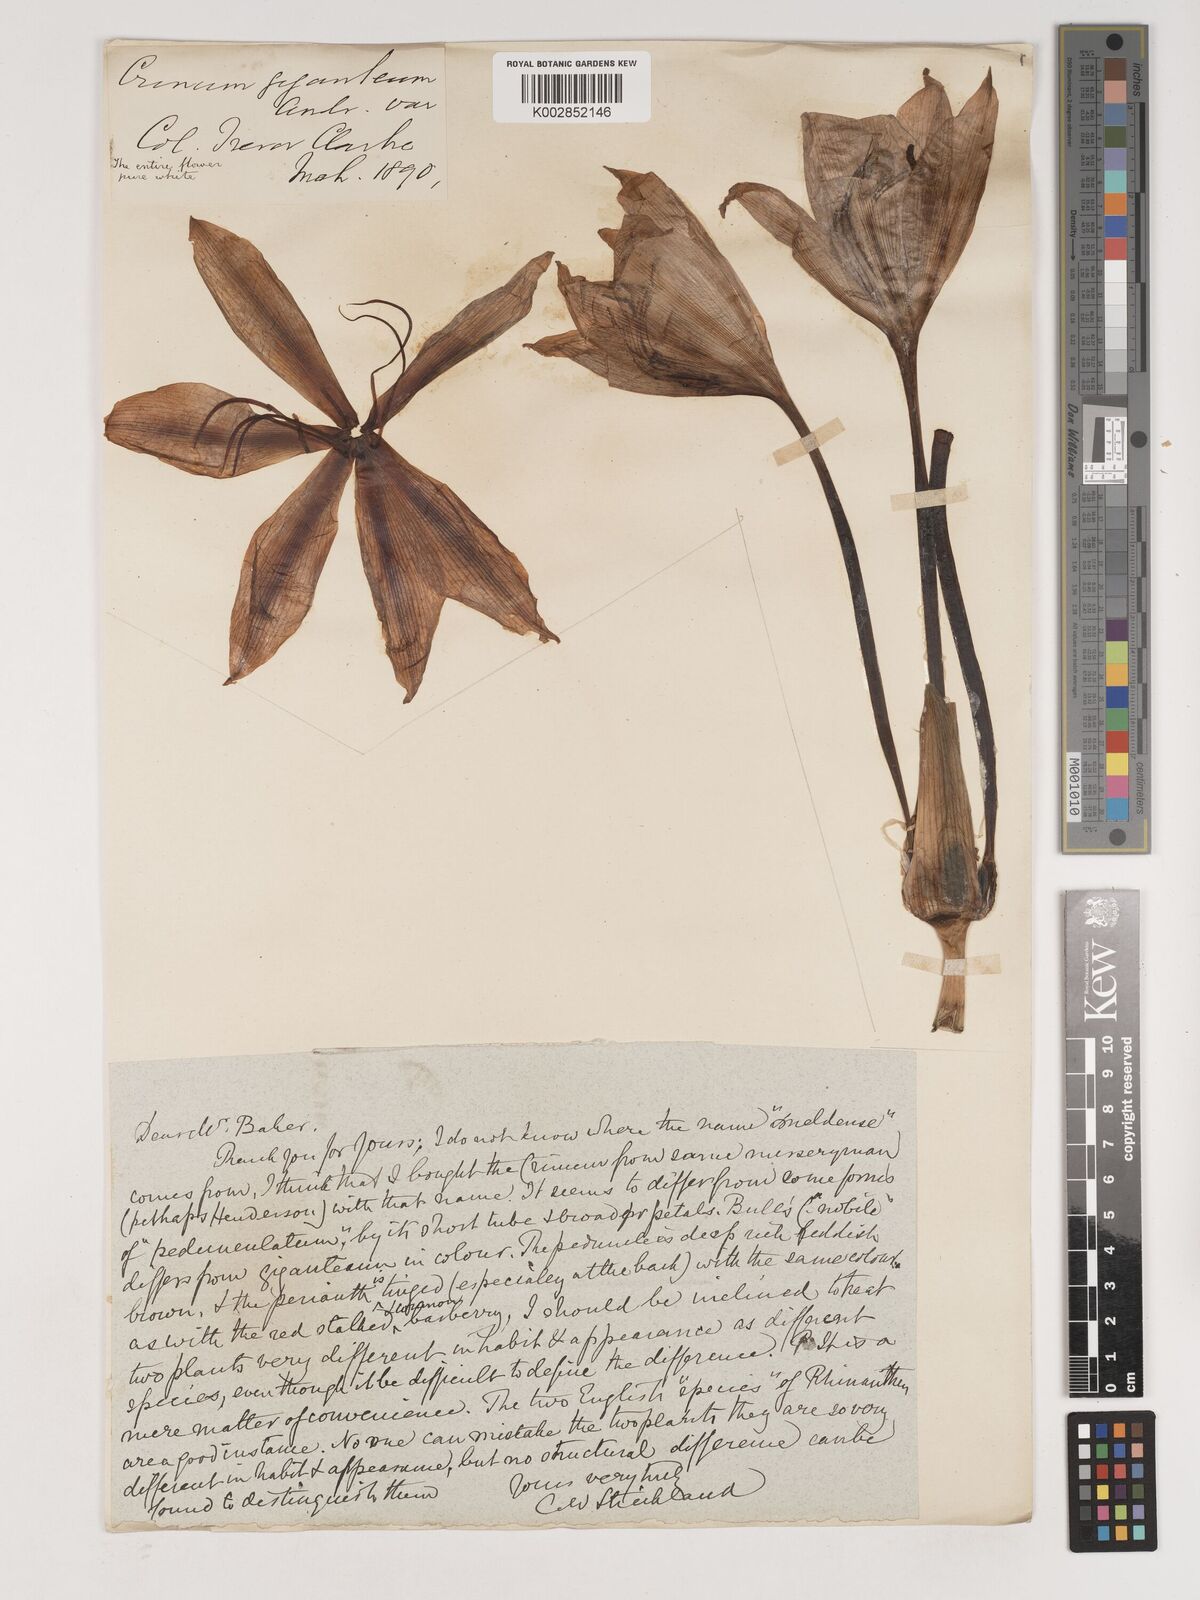 ROYAL BOTANIC GARDENS KEW
K002852146
Crinum giganteum
Andr. var
Col. Trevor Clarke
The entire flower
pure white
Mch. 1890,
Dear Mr. Baker.
Thank you for yours; I do not know where the name
comes from, I think that I bought the Crinum from same nurseryman
(perhaps Henderson) with that name. It seems to differ from some forms
of "pedunculatum," by its short tube & broader petals. Bull's ("nobile"
differs from giganteum in colour. The peduncle is deep rich reddish
brown, & the perianth is tinged (especially at the back) with the same colour.
as with the red stalked & common barberry, I should be inclined to treat
two plants very different in habit & appearance as different
species, even though it be difficult to define the difference. It is a
mere matter of convenience. The two English "species" of Rhinanthus
are a good instance. No one can mistake the two plants they are so very
different in habit & appearance, but no structural difference can be
found to distinguish them
Yours very truly
C W Strickland
inches
centimetres
Density
Don Williams
M001010
Royal Botanic Gardens
Kew
0 1 2 3 4 5 6 7 8 9 10
cm
copyright reserved